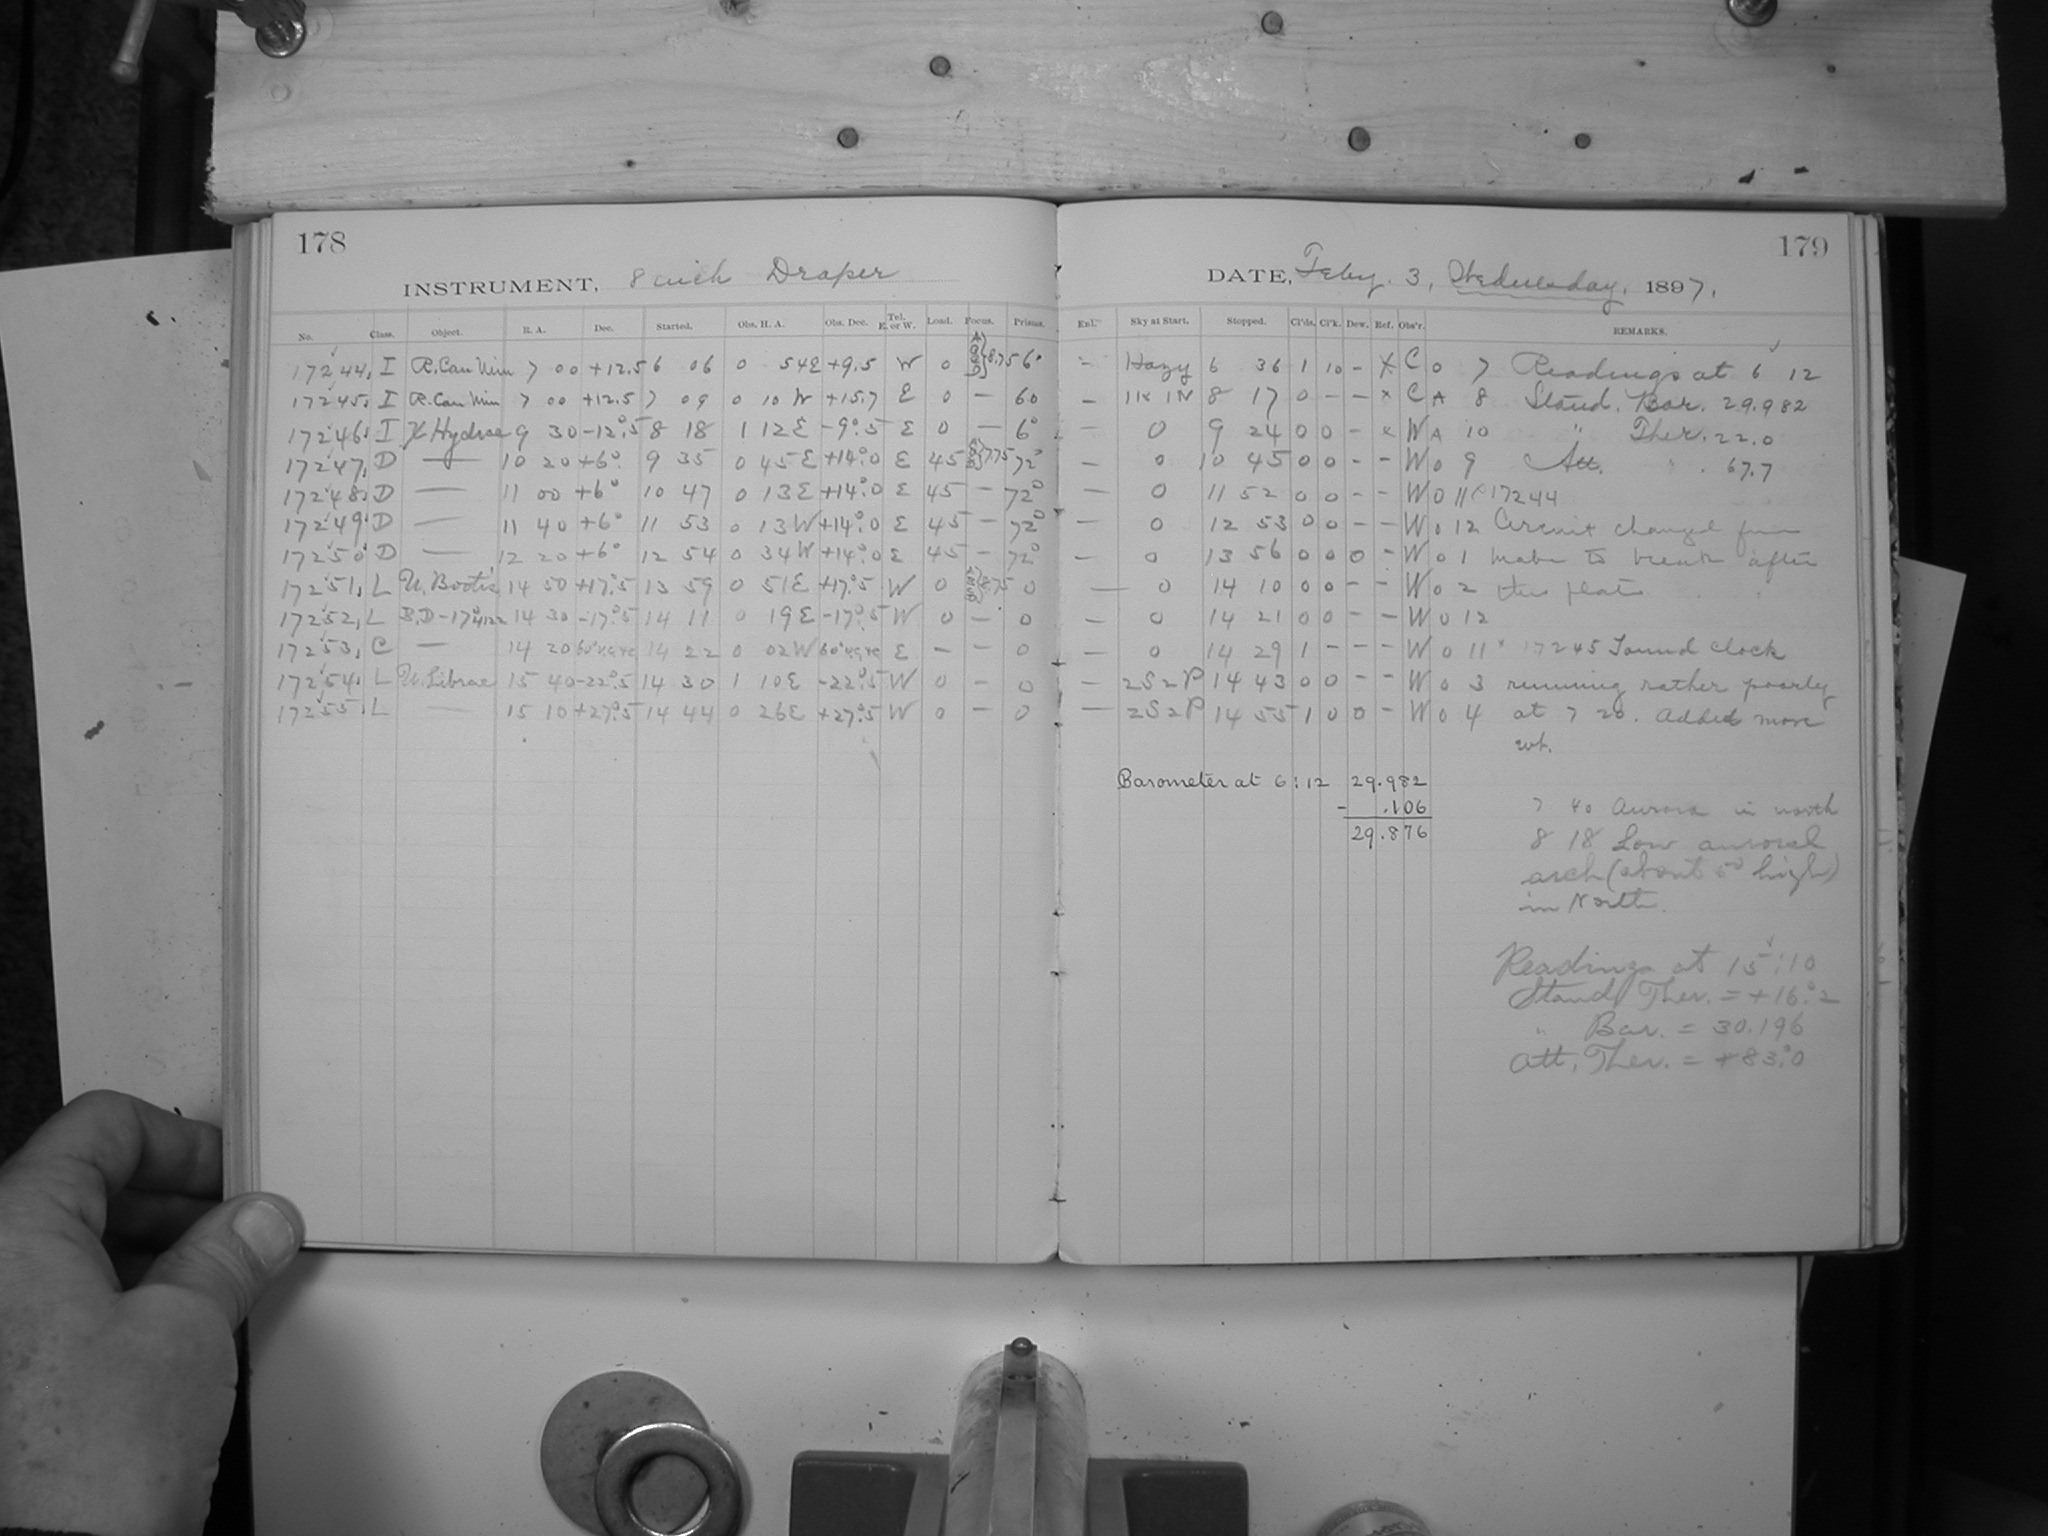 178
INSTRUMENT, 8 inch Draper
No. Class. Object. R. A. Dec. Started. Obs. H. A. Obs. Dec. Tel. E. or W. Load. Focus. Prisms.
17244, I R. Can Min 7 00 +12.5 6 06 0 54E +9.5 W 0 8.75 6°
17245, I R. Can Min 7 00 +12.5 7 09 0 10 W +15.7 E 0 — 60
17246, I X Hydrae 9 30 -12°.5 8 18 1 12E -9°.5 E 0 — 6°
17247, D — 10 20 +6° 9 35 0 45E +14°.0 E 45 7.75 72°
17248, D — 11 00 +6° 10 47 0 13E +14°.0 E 45 — 72°
17249, D — 11 40 +6° 11 53 0 13W +14°.0 E 45 — 72°
17250, D — 12 20 +6° 12 54 0 34W +14°.0 E 45 — 72°
17251, L U. Bootis 14 50 +17°.5 13 59 0 51E +17°.5 W 0 0
17252, L B.D -17°4122 14 30 -17°.5 14 11 0 19E -17°.5 W 0 — 0
17253, C — 14 20 14 22 0 02W E — — 0
17254, L U. Librae 15 40 -22°.5 14 30 1 10E -22°.5 W 0 — 0
17255, L — 15 10 +27°.5 14 44 0 26E +27°.5 W 0 — 0
179
DATE, Feby. 3, Wednesday, 1897.
Enl. Sky at Start. Stopped. Cl'ds. Cl'k. Dew. Ref. Obs'r. REMARKS.
— Hazy 6 36 1 10 — X C 0 7 Readings at 6 12
— 8 17 0 — — x C A 8 Stand. Bar. 29.982
— 0 9 24 0 0 — x W A 10 " Ther. 22.0
— 0 10 45 0 0 — — W 0 9 Att. " 67.7
— 0 11 52 0 0 — — W 0 11 17244
— 0 12 53 0 0 — — W 0 12 Circuit changed from
— 0 13 56 0 0 0 — W 0 1 make to break after
— 0 14 10 0 0 — — W 0 2 this plate
— 0 14 21 0 0 — — W 0 12
— 0 14 29 1 — — — W 0 11 x 17245 Found clock
— 2S2P 14 43 0 0 — — W 0 3 running rather poorly
— 2S2P 14 55 1 0 0 — W 0 4 at 7 20. Added more
wt.
Barometer at 6:12 29.982
- .106
29.876
7 40 Aurora in north
8 18 Low auroral
arch (about 5° high)
in North.
Readings at 15:10
Stand. Ther. = +16°.2
" Bar. = 30.196
Att. Ther. = +83°.0